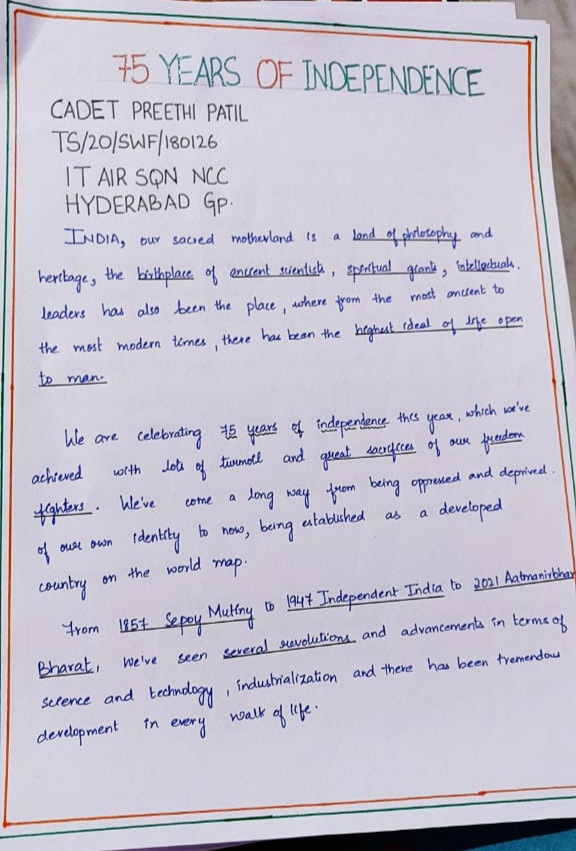 75 YEARS OF INDEPENDENCE
CADET PREETHI PATIL
TS/20/SWF/180126
IT AIR SQN NCC
HYDERABAD Gp.
INDIA, our sacred motherland is a land of philosophy and
heritage, the birthplace of ancient scientists, spiritual giants, intellectuals.
leaders has also been the place, where from the most ancient to
the most modern times, there has been the highest ideal of life open
to man.
We are celebrating 75 years of independence this year, which we've
achieved with lots of turmoil and great sacrifices of our freedom
fighters. We've come a long way from being oppressed and deprived.
of our own identity to now, being established as a developed
country on the world map.
From 1857 Sepoy Mutiny to 1947 Independent India to 2021 Aatmanirbhar
Bharat, we've seen several revolutions and advancements in terms of
science and technology, industrialization and there has been tremendous
development in every walk of life.